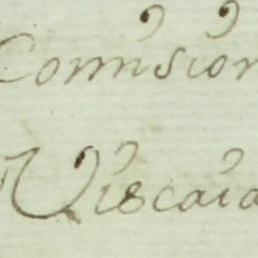 Comision
Viscaia